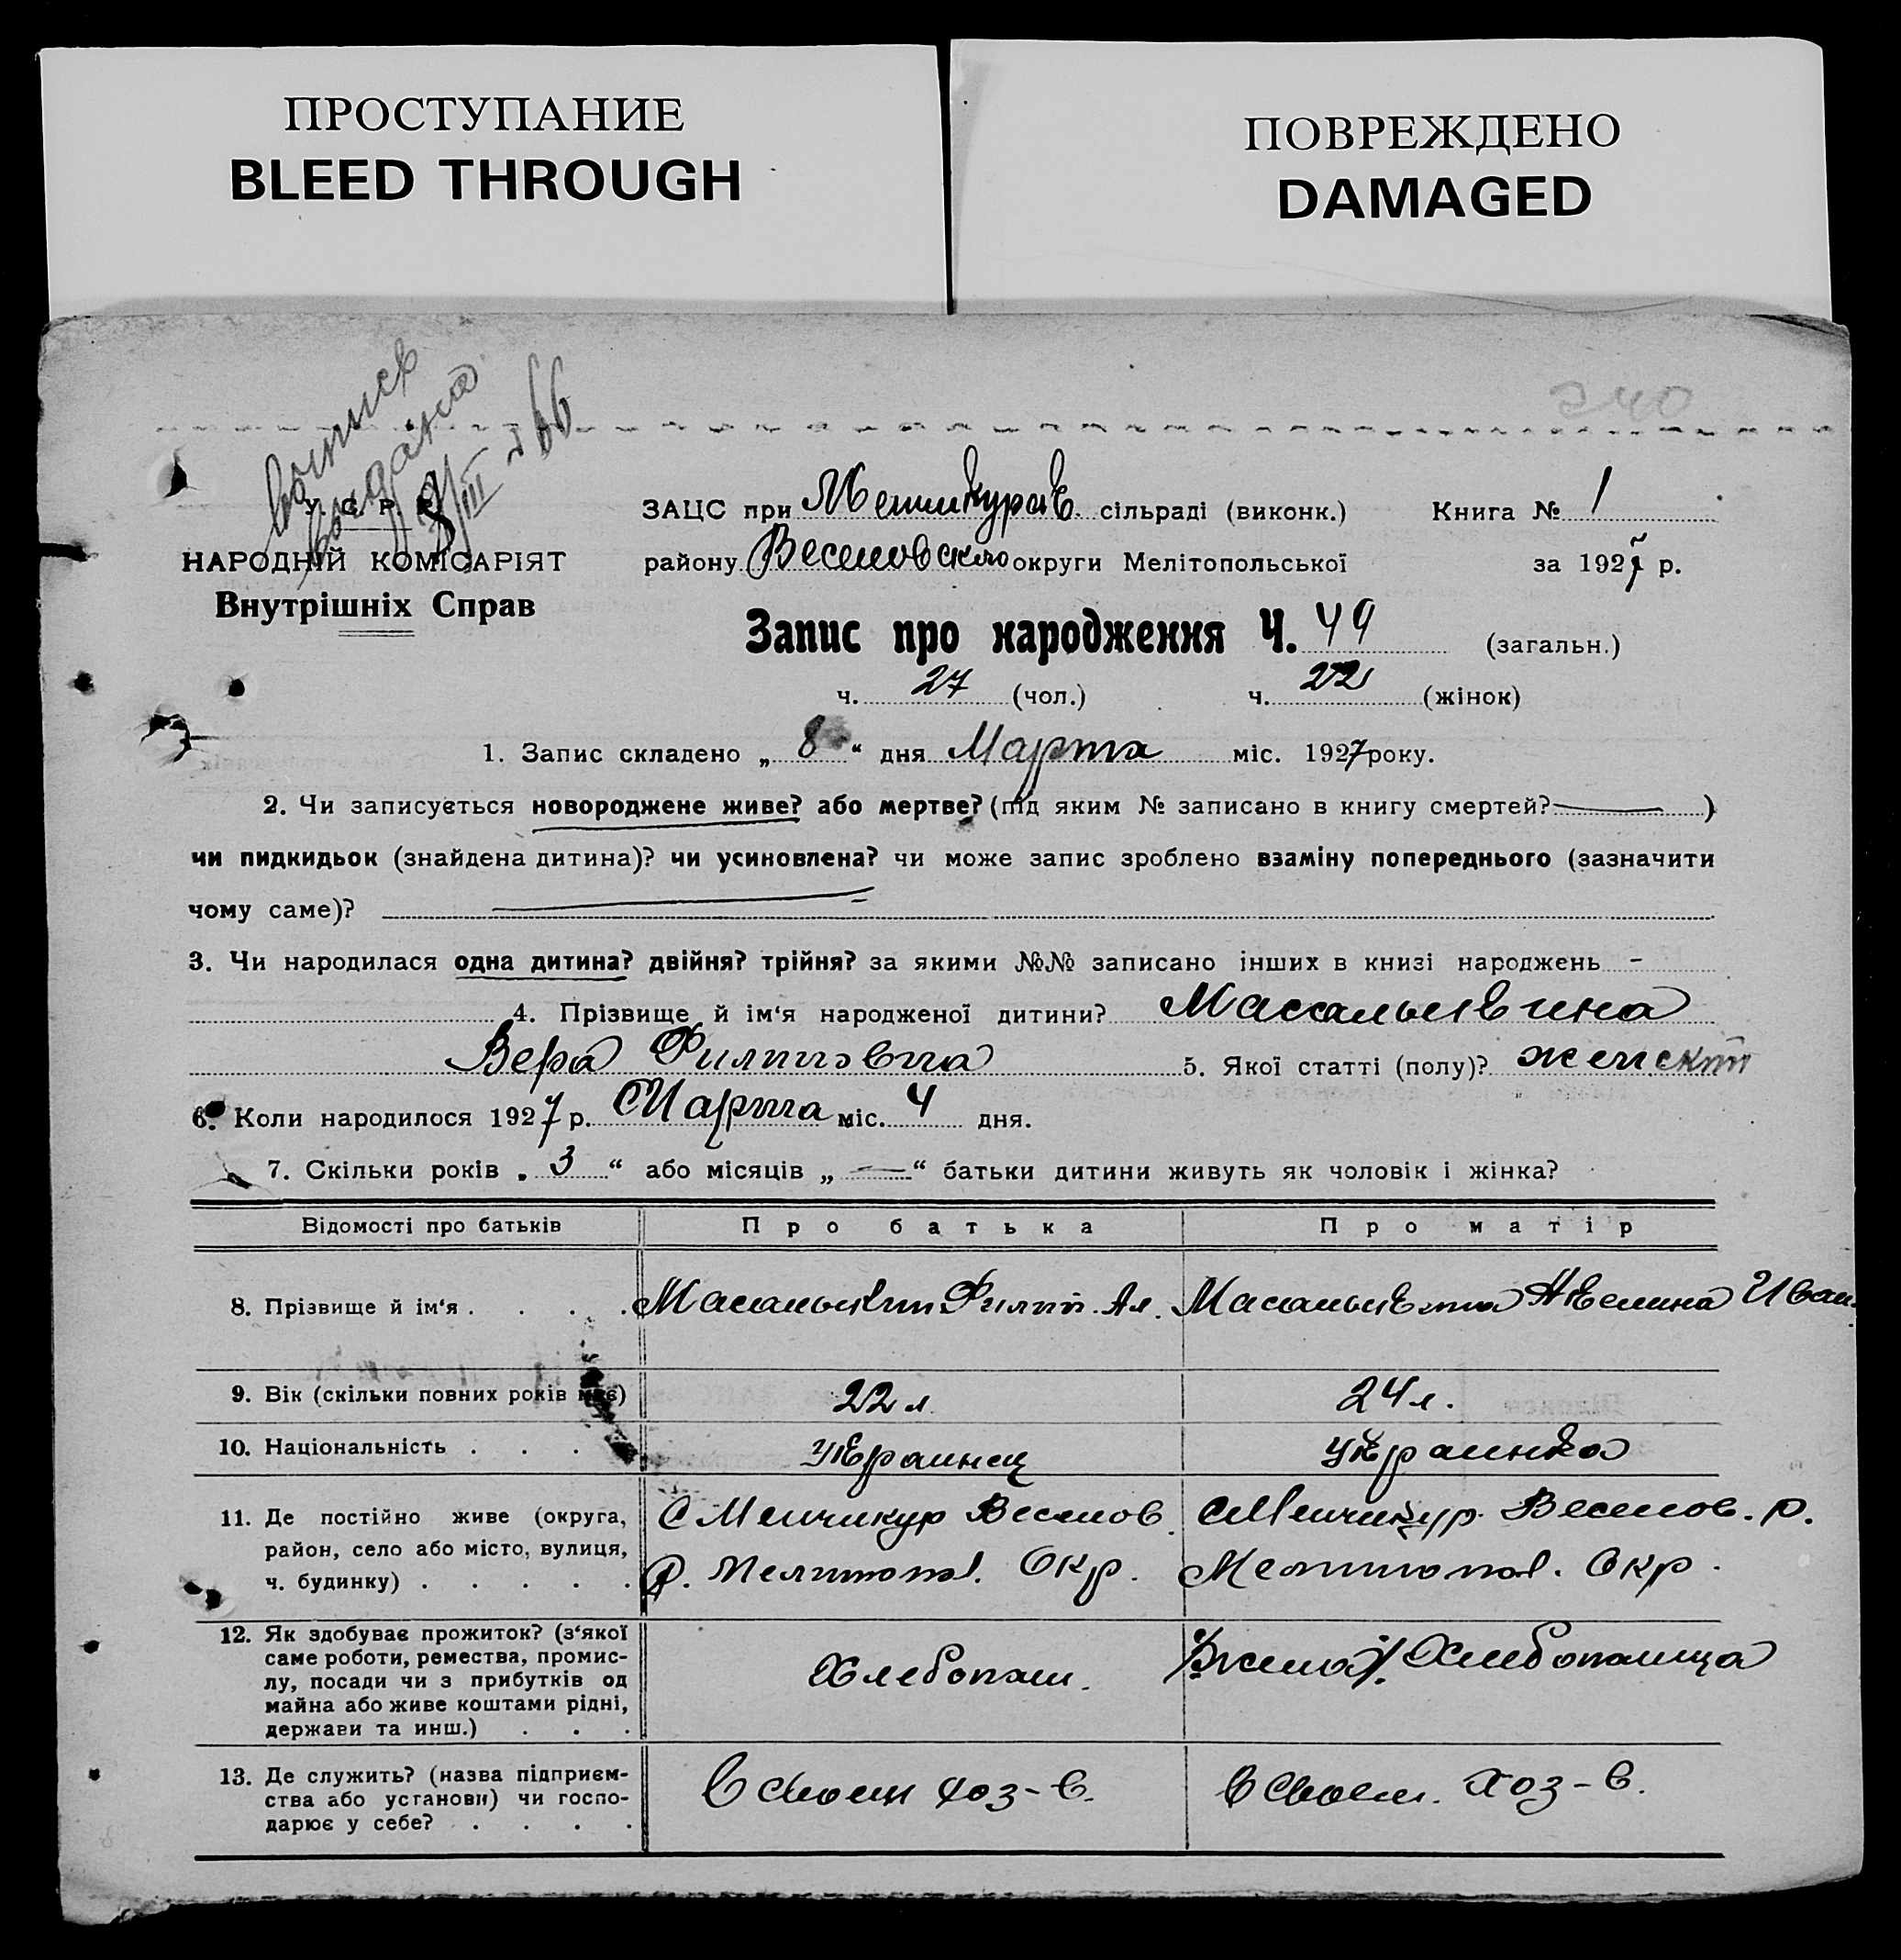 ПРОСТУПАНИЕ
BLEED THROUGH
ПОВРЕЖДЕНО
DAMAGED
240
выпись
выдана
9/III 66
У. С. Р. Р.
НАРОДНІЙ КОМІСАРІЯТ
Внутрішніх Справ
ЗАЦС при Менчикурів. сільраді (виконк.) Книга № 1
району Веселовского округи Мелітопольської за 1927 р.
Запис про народження Ч. 49 (загальн.)
ч. 27 (чол.) ч. 22 (жінок)
1. Запис складено „ 8 “ дня Марта міс. 1927 року.
2. Чи записується новороджене живе? або мертве? (під яким № записано в книгу смертей? — )
чи пидкидьок (знайдена дитина)? чи усиновлена? чи може запис зроблено взаміну попереднього (зазначити
чому саме)? —
3. Чи народилася одна дитина? двійня? трійня? за якими №№ записано інших в книзі народжень -
4. Прізвище й ім‘я народженої дитини?
Вера Филиповна 5. Якої статті (полу)? женский
6. Коли народилося 1927 р. Марта міс. 4 дня.
7. Скільки років „ 3 “ або місяців „ — “ батьки дитини живуть як чоловік і жінка?
Відомості про батьків Про батька Про матір
8. Прізвище й ім‘я . . . . Филип. Ал. Иван.
9. Вік (скільки повних років має) 22 л. 24 л.
10. Національність . . . украинец украинка
11. Де постійно живе (округа, С Менчикур Веселов. С Менчикур. Веселов. р.
район, село або місто, вулиця,
ч. будинку) . . . . . р. Мелитопол. Окр. Мелитопол. Окр.
12. Як здобуває прожиток? (з‘якої
саме роботи, ремества, промис-
лу, посади чи з прибутків од Хлебопаш. Хлебопашца
майна або живе коштами рідні,
держави та инш.) . . .
13. Де служить? (назва підприєм-
ства або установи) чи госпо- в своем хоз-в. в своем. хоз-в.
дарює у себе? . . . .